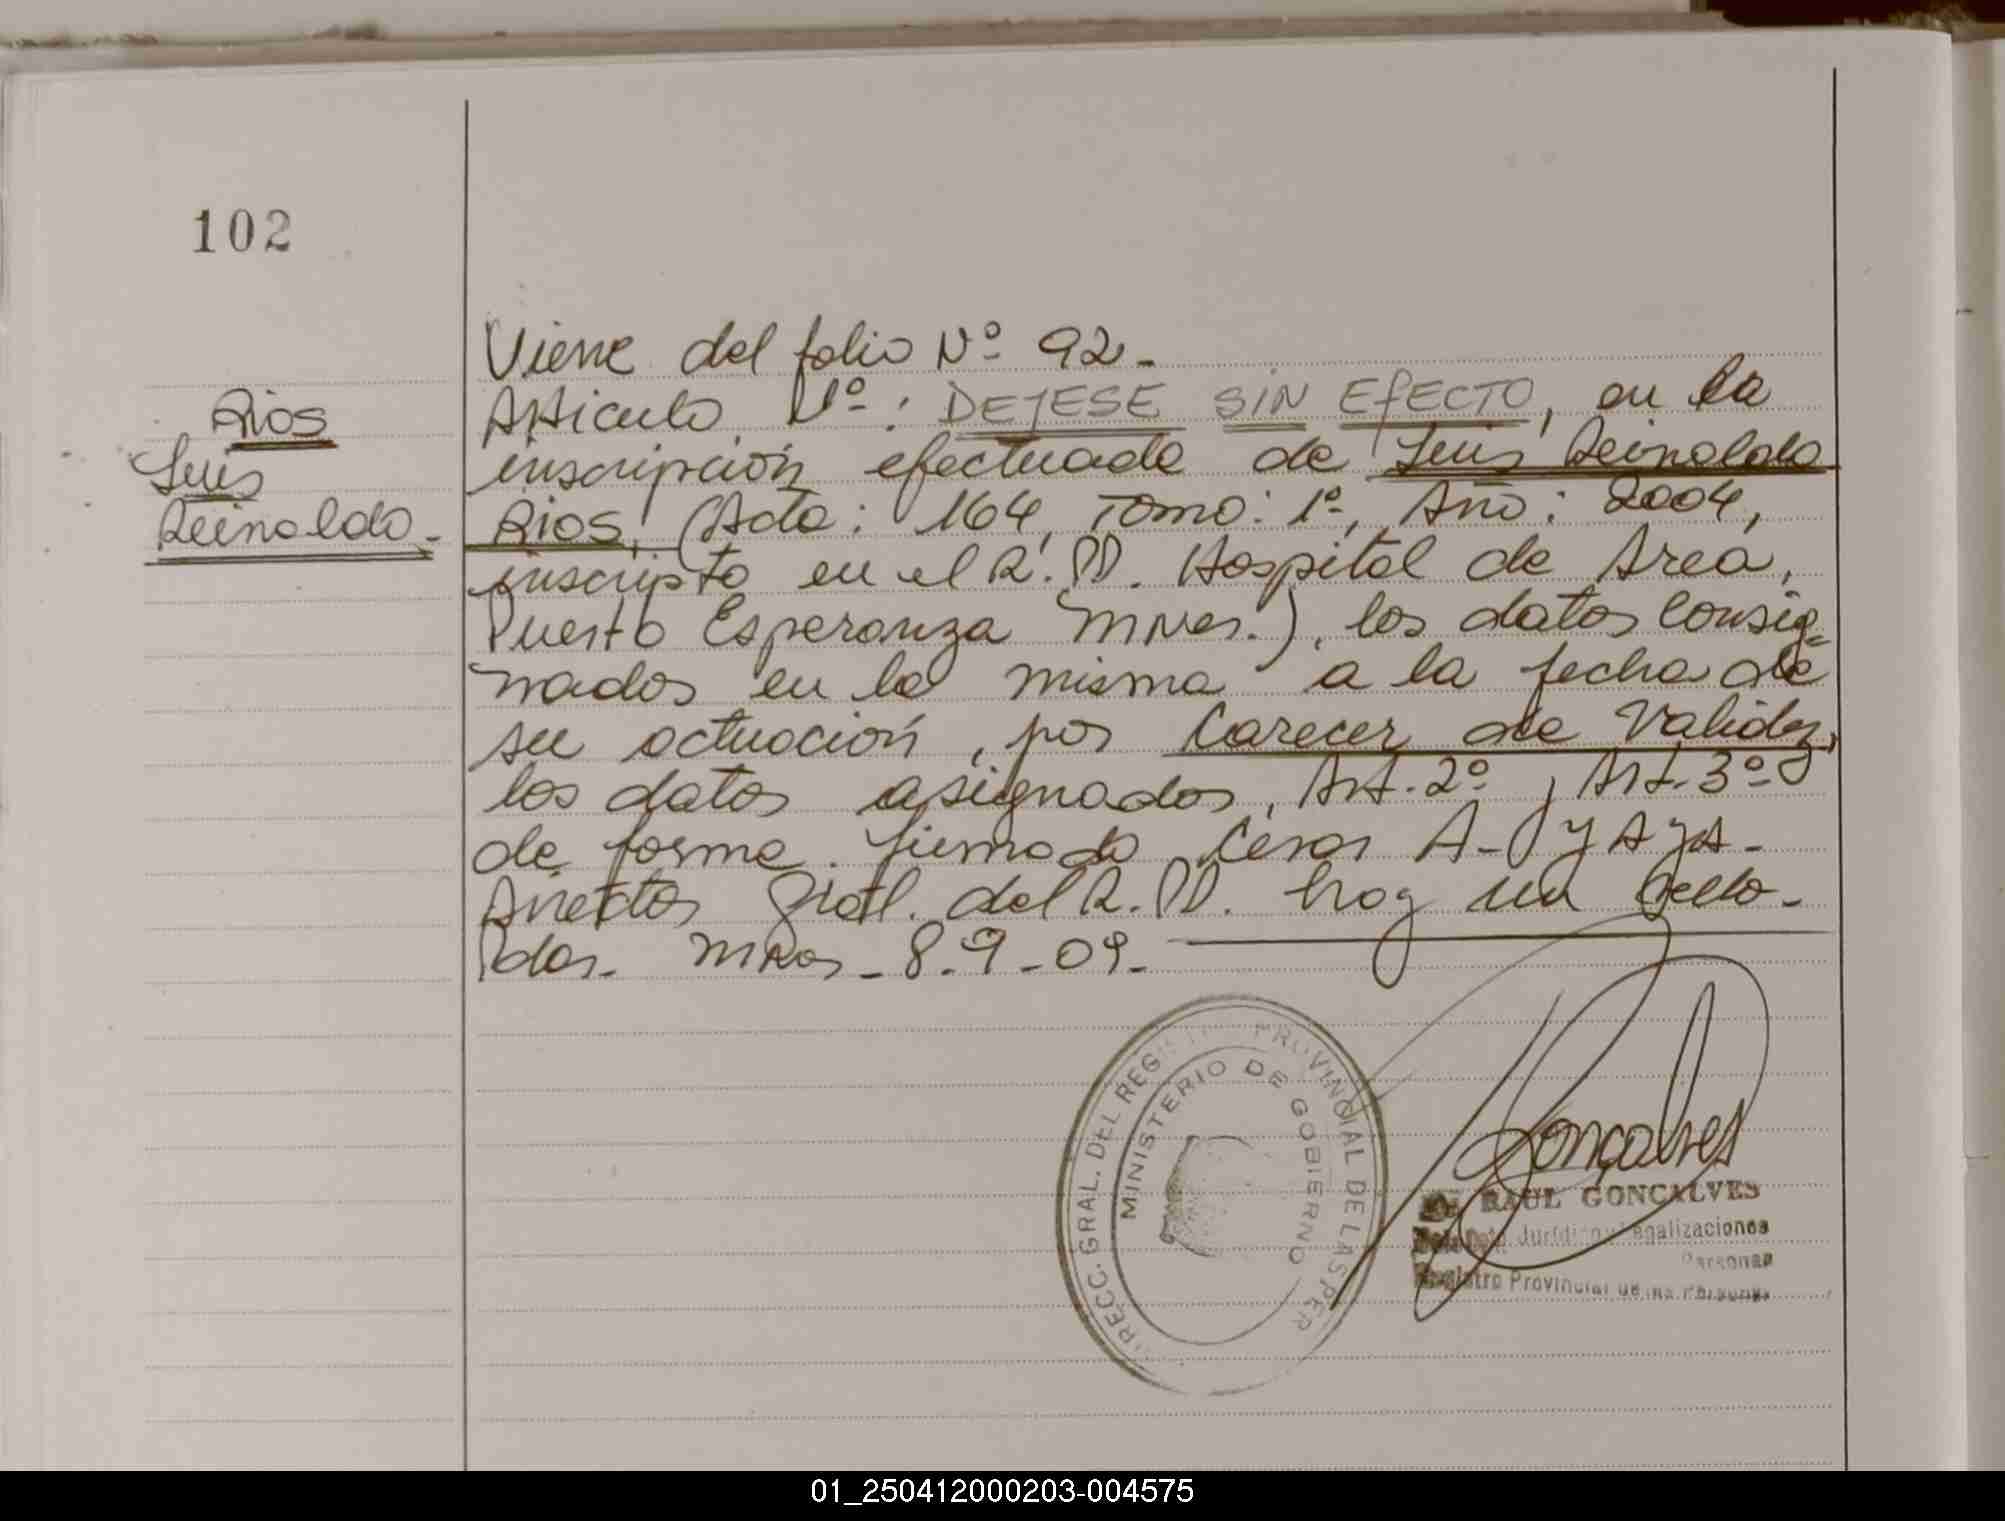 102
Rios
Luis
Reinaldo.-
Viene del folio Nº 92.-
Articulo 1º: DEJESE SIN EFECTO, en la
inscripción efectuada de Luis Reinaldo
Rios, (Acta: 164, Tomo: 1º, Año: 2004,
inscripto en el R.PP. Hospital de Area,
Puerto Esperanza Mnes.), los datos consig=
nados en la misma a la fecha de
su actuación, por Carecer de Validez,
los datos asignados, Art. 2º, Art. 3º
de forma. firmado Cesar A. Ayala-
Director Gral. del R.PP. hay un sello.-
Pdas. Mnes - 8-9-09.-
DIRECC. GRAL. DEL REGISTRO PROVINCIAL DE LAS PER
MINISTERIO DE GOBIERNO
Goncalves
RAUL GONCALVES
Jurídico y Legalizaciones
Personas
Registro Provincial de las Personas
01_250412000203-004575